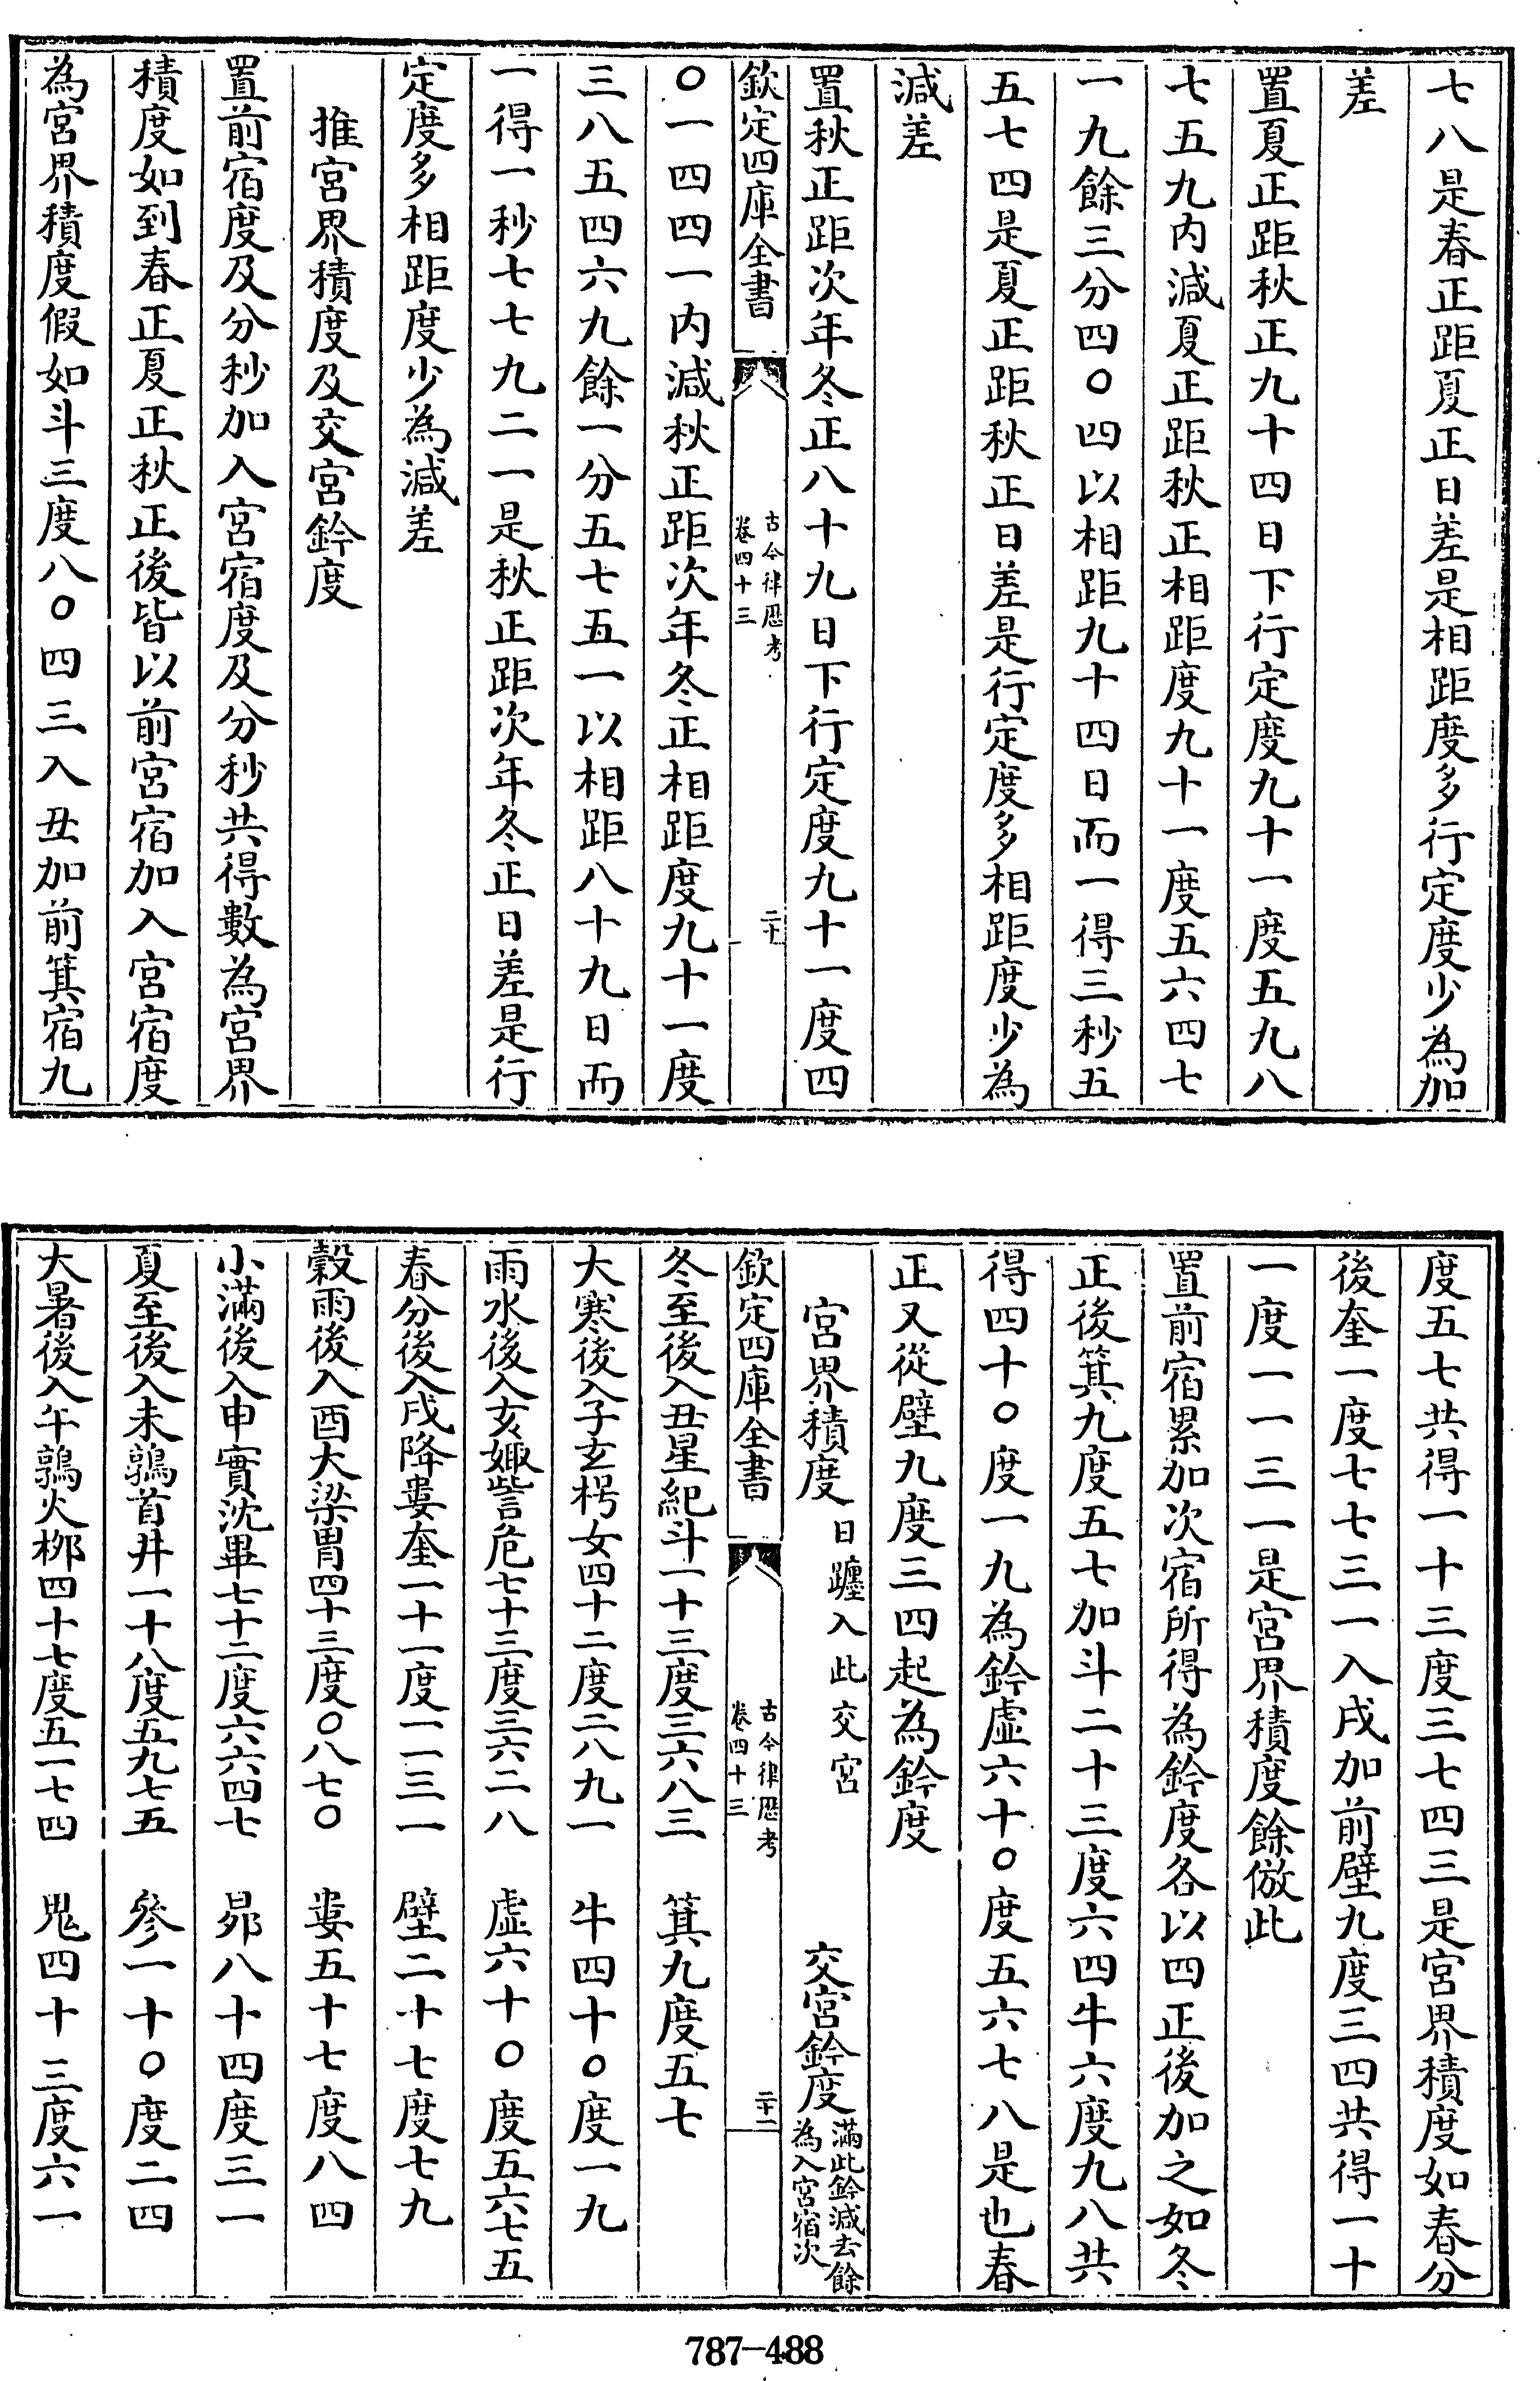 七八是春正距夏正日差是相距度多行定度少為加
差
置夏正距秋正九十四日下行定度九十一度五九八
七五九內減夏正距秋正相距度九十一度五六四七
一九餘三分四〇四以相距九十四日而一得三秒五
五七四是夏正距秋正日差是行定度多相距度少為
減差
置秋正距次年冬正八十九日下行定度九十一度四
欽定四庫全書
古今律歷考
卷四十三
二十
〇一四四一內減秋正距次年冬正相距度九十一度
三八五四六九餘一分五七五一以相距八十九日而
一得一秒七七九二一是秋正距次年冬正日差是行
定度多相距度少為減差
推宮界積度及交宮鈐度
置前宿度及分秒加入宮宿度及分秒共得數為宮界
積度如到春正夏正秋正後皆以前宮宿加入宮宿度
為宮界積度假如斗三度八〇四三入丑加前箕宿九
度五七共得一十三度三七四三是宮界積度如春分
後奎一度七七三一入戌加前壁九度三四共得一十
一度一一三一是宮界積度餘倣此
置前宿累加次宿所得為鈐度各以四正後加之如冬
正後箕九度五七加斗二十三度六四牛六度九八共
得四十〇度一九為鈐虛六十〇度五六七八是也春
正又從壁九度三四起為鈐度
宮界積度 日躔入此交宮 交宮鈐度 滿此鈐減去餘為入宮宿次
欽定四庫全書
古今律歷考
卷四十三
二十一
冬至後入丑星紀斗一十三度三六八三 箕九度五七
大寒後入子玄枵女四十二度二八九一 牛四十〇度一九
雨水後入亥娵訾危七十三度三六二八 虛六十〇度五六七五
春分後入戌降婁奎一十一度一一三一 壁二十七度七九
穀雨後入酉大梁胃四十三度〇八七〇 婁五十七度八四
小滿後入申實沈畢七十二度六六四七 昴八十四度三一
夏至後入未鶉首井一十八度五九七五 參一十〇度二四
大暑後入午鶉火柳四十七度五一七四 鬼四十三度六一
787-488